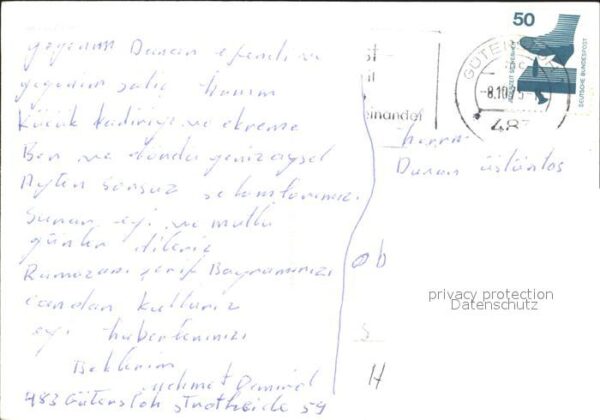 yegenim Duran efendi ve
yegenim saliç hanım
Küçük kadiriye ve ekreme
Ben ve
Ayten sonsuz selamlarımızı
Sunar eyi ve mutlu
günler dileriz
Ramazanı şerif Bayramınızı
candan kutlarız
eyi haberlerinizi
Beklerim
Mehmet Demirel
483 Gütersloh strotheide 59
50
DEUTSCHE BUNDESPOST
-8.10.75
483
einander
herrn
Duran üstüntaş
ob
S
H
privacy protection
Datenschutz